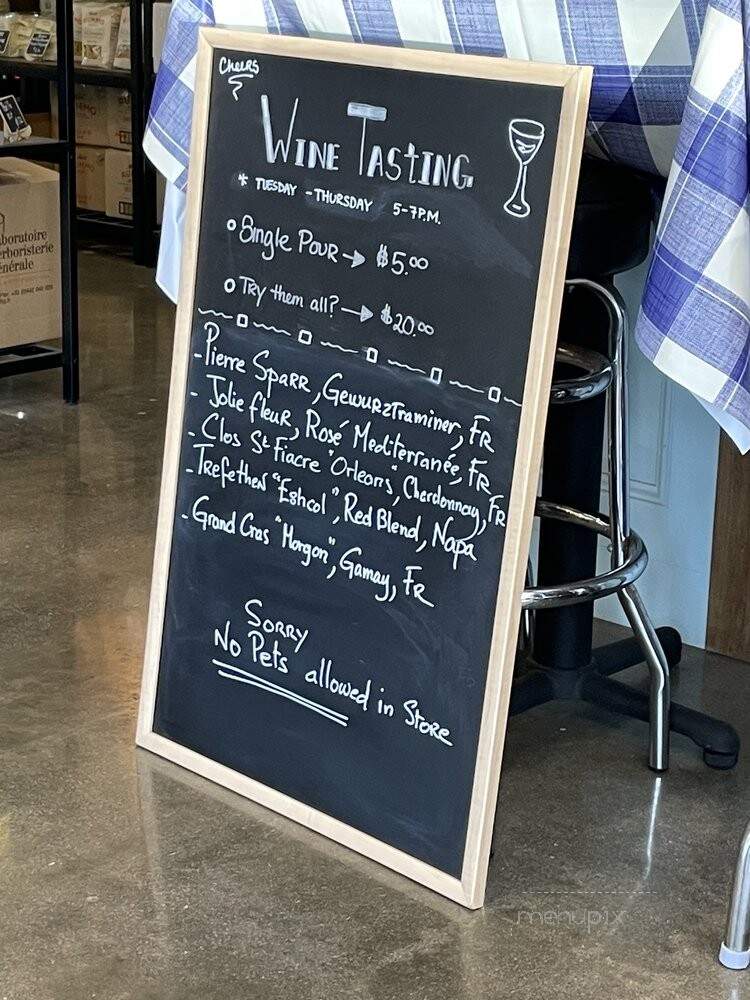 Cheers
WINE TASTING
* TUESDAY - THURSDAY 5-7P.M.
Single Pour → $5.00
Try them all? → $20.00
- Pierre Sparr, Gewurztraminer, FR
- Jolie fleur, Rosé Mediterranée, FR
- Clos St Fiacre "Orleans", Chardonnay, FR
- Trefethen "Eshcol", Red Blend, Napa
- Grand Cras "Morgon", Gamay, FR
Sorry
No Pets allowed in Store
aboratoire
erboristerie
énérale
menupix